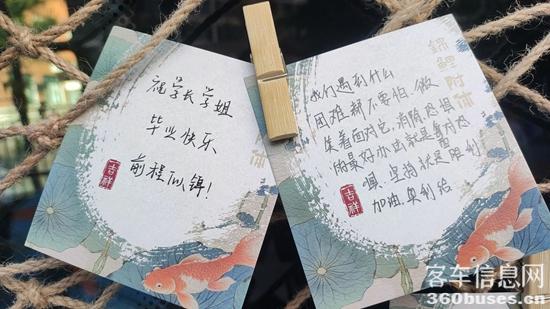 祝学长学姐
毕业快乐
前程似锦!
吉祥
锦鲤附体
我们遇到什么
困难都不要怕,微
笑着面对它,消除恐惧
的最好办法就是面对恐
惧,坚持就是胜利
加油,奥利给
吉祥
客车信息网
360buses.cn